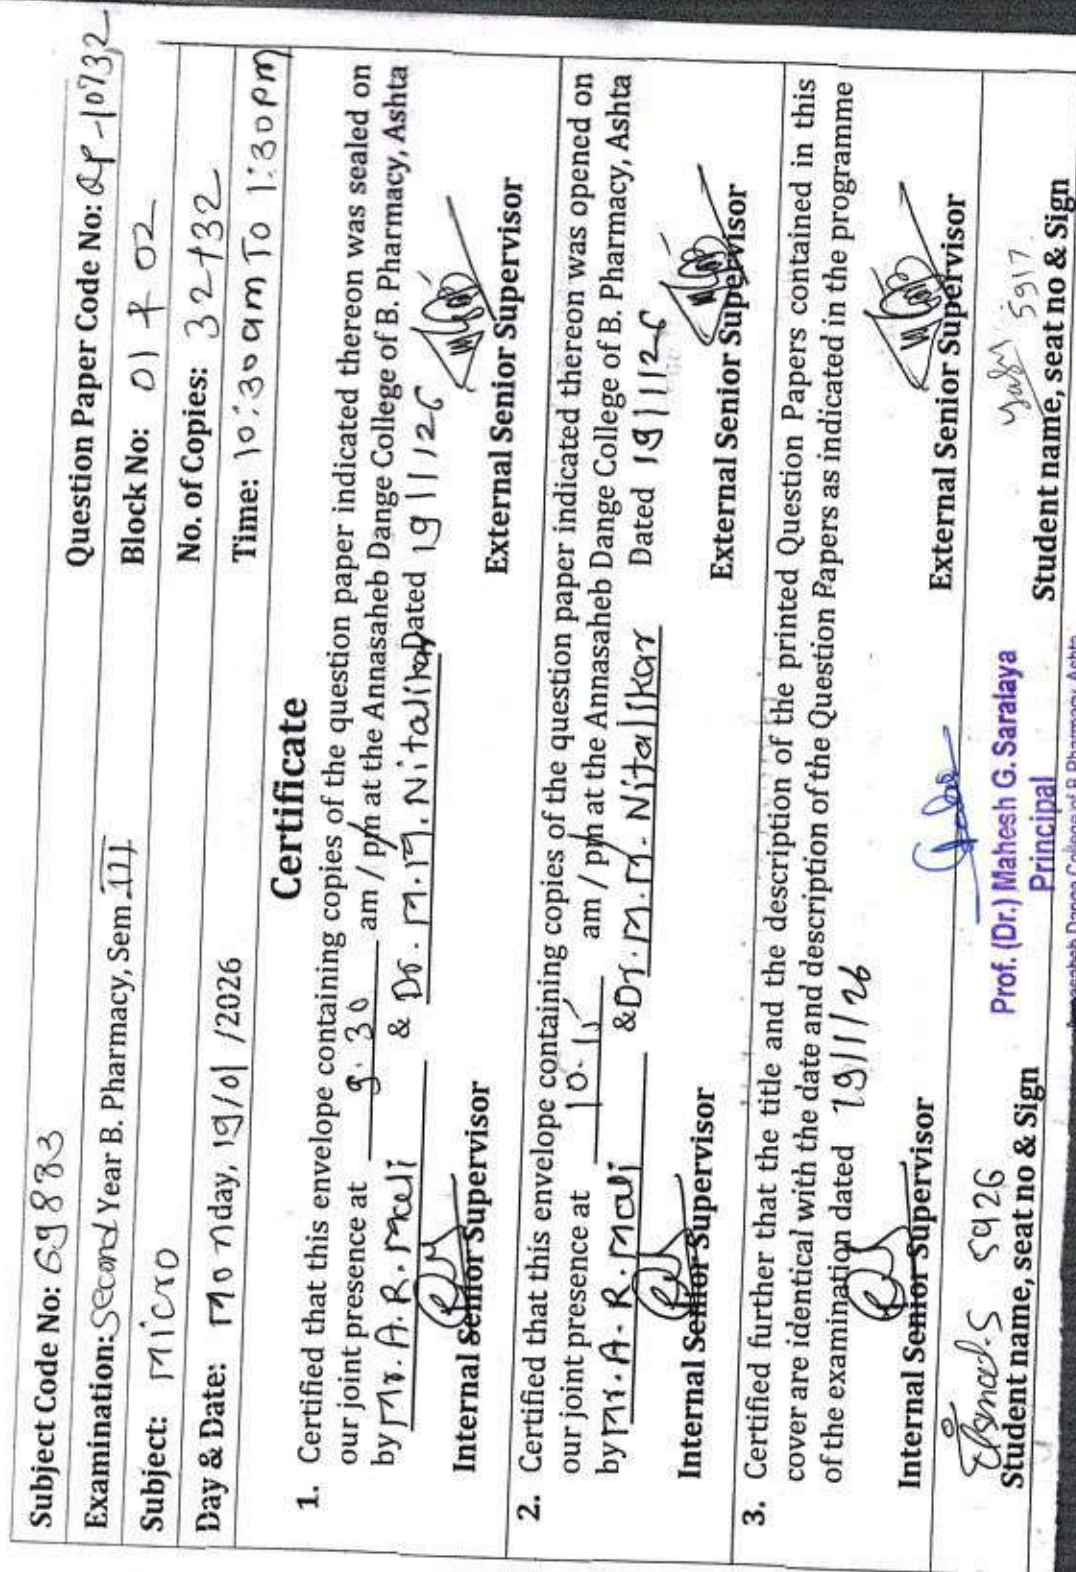 Subject Code No: 69883 Question Paper Code No: QP-10732
Examination: Second Year B. Pharmacy, Sem III Block No: 01 & 02
Subject: Micro No. of Copies: 32+32
Day & Date: Monday, 19/01/2026 Time: 10:30am To 1:30pm
Certificate
1. Certified that this envelope containing copies of the question paper indicated thereon was sealed on
our joint presence at 9.30 am / pm at the Annasaheb Dange College of B. Pharmacy, Ashta
by Mr. A. R. Mali & Dr. M. M. Nitalikar Dated 19/1/26
Internal Senior Supervisor External Senior Supervisor
2. Certified that this envelope containing copies of the question paper indicated thereon was opened on
our joint presence at 10.15 am / pm at the Annasaheb Dange College of B. Pharmacy, Ashta
by Mr. A. R. Mali & Dr. M. M. Nitalikar Dated 19/1/26
Internal Senior Supervisor External Senior Supervisor
3. Certified further that the title and the description of the printed Question Papers contained in this
cover are identical with the date and description of the Question Papers as indicated in the programme
of the examination dated 19/1/26
Internal Senior Supervisor External Senior Supervisor
5926 5917
Student name, seat no & Sign Student name, seat no & Sign
Prof. (Dr.) Mahesh G. Saralaya
Principal
Annasaheb Dange College of B.Pharmacy, Ashta